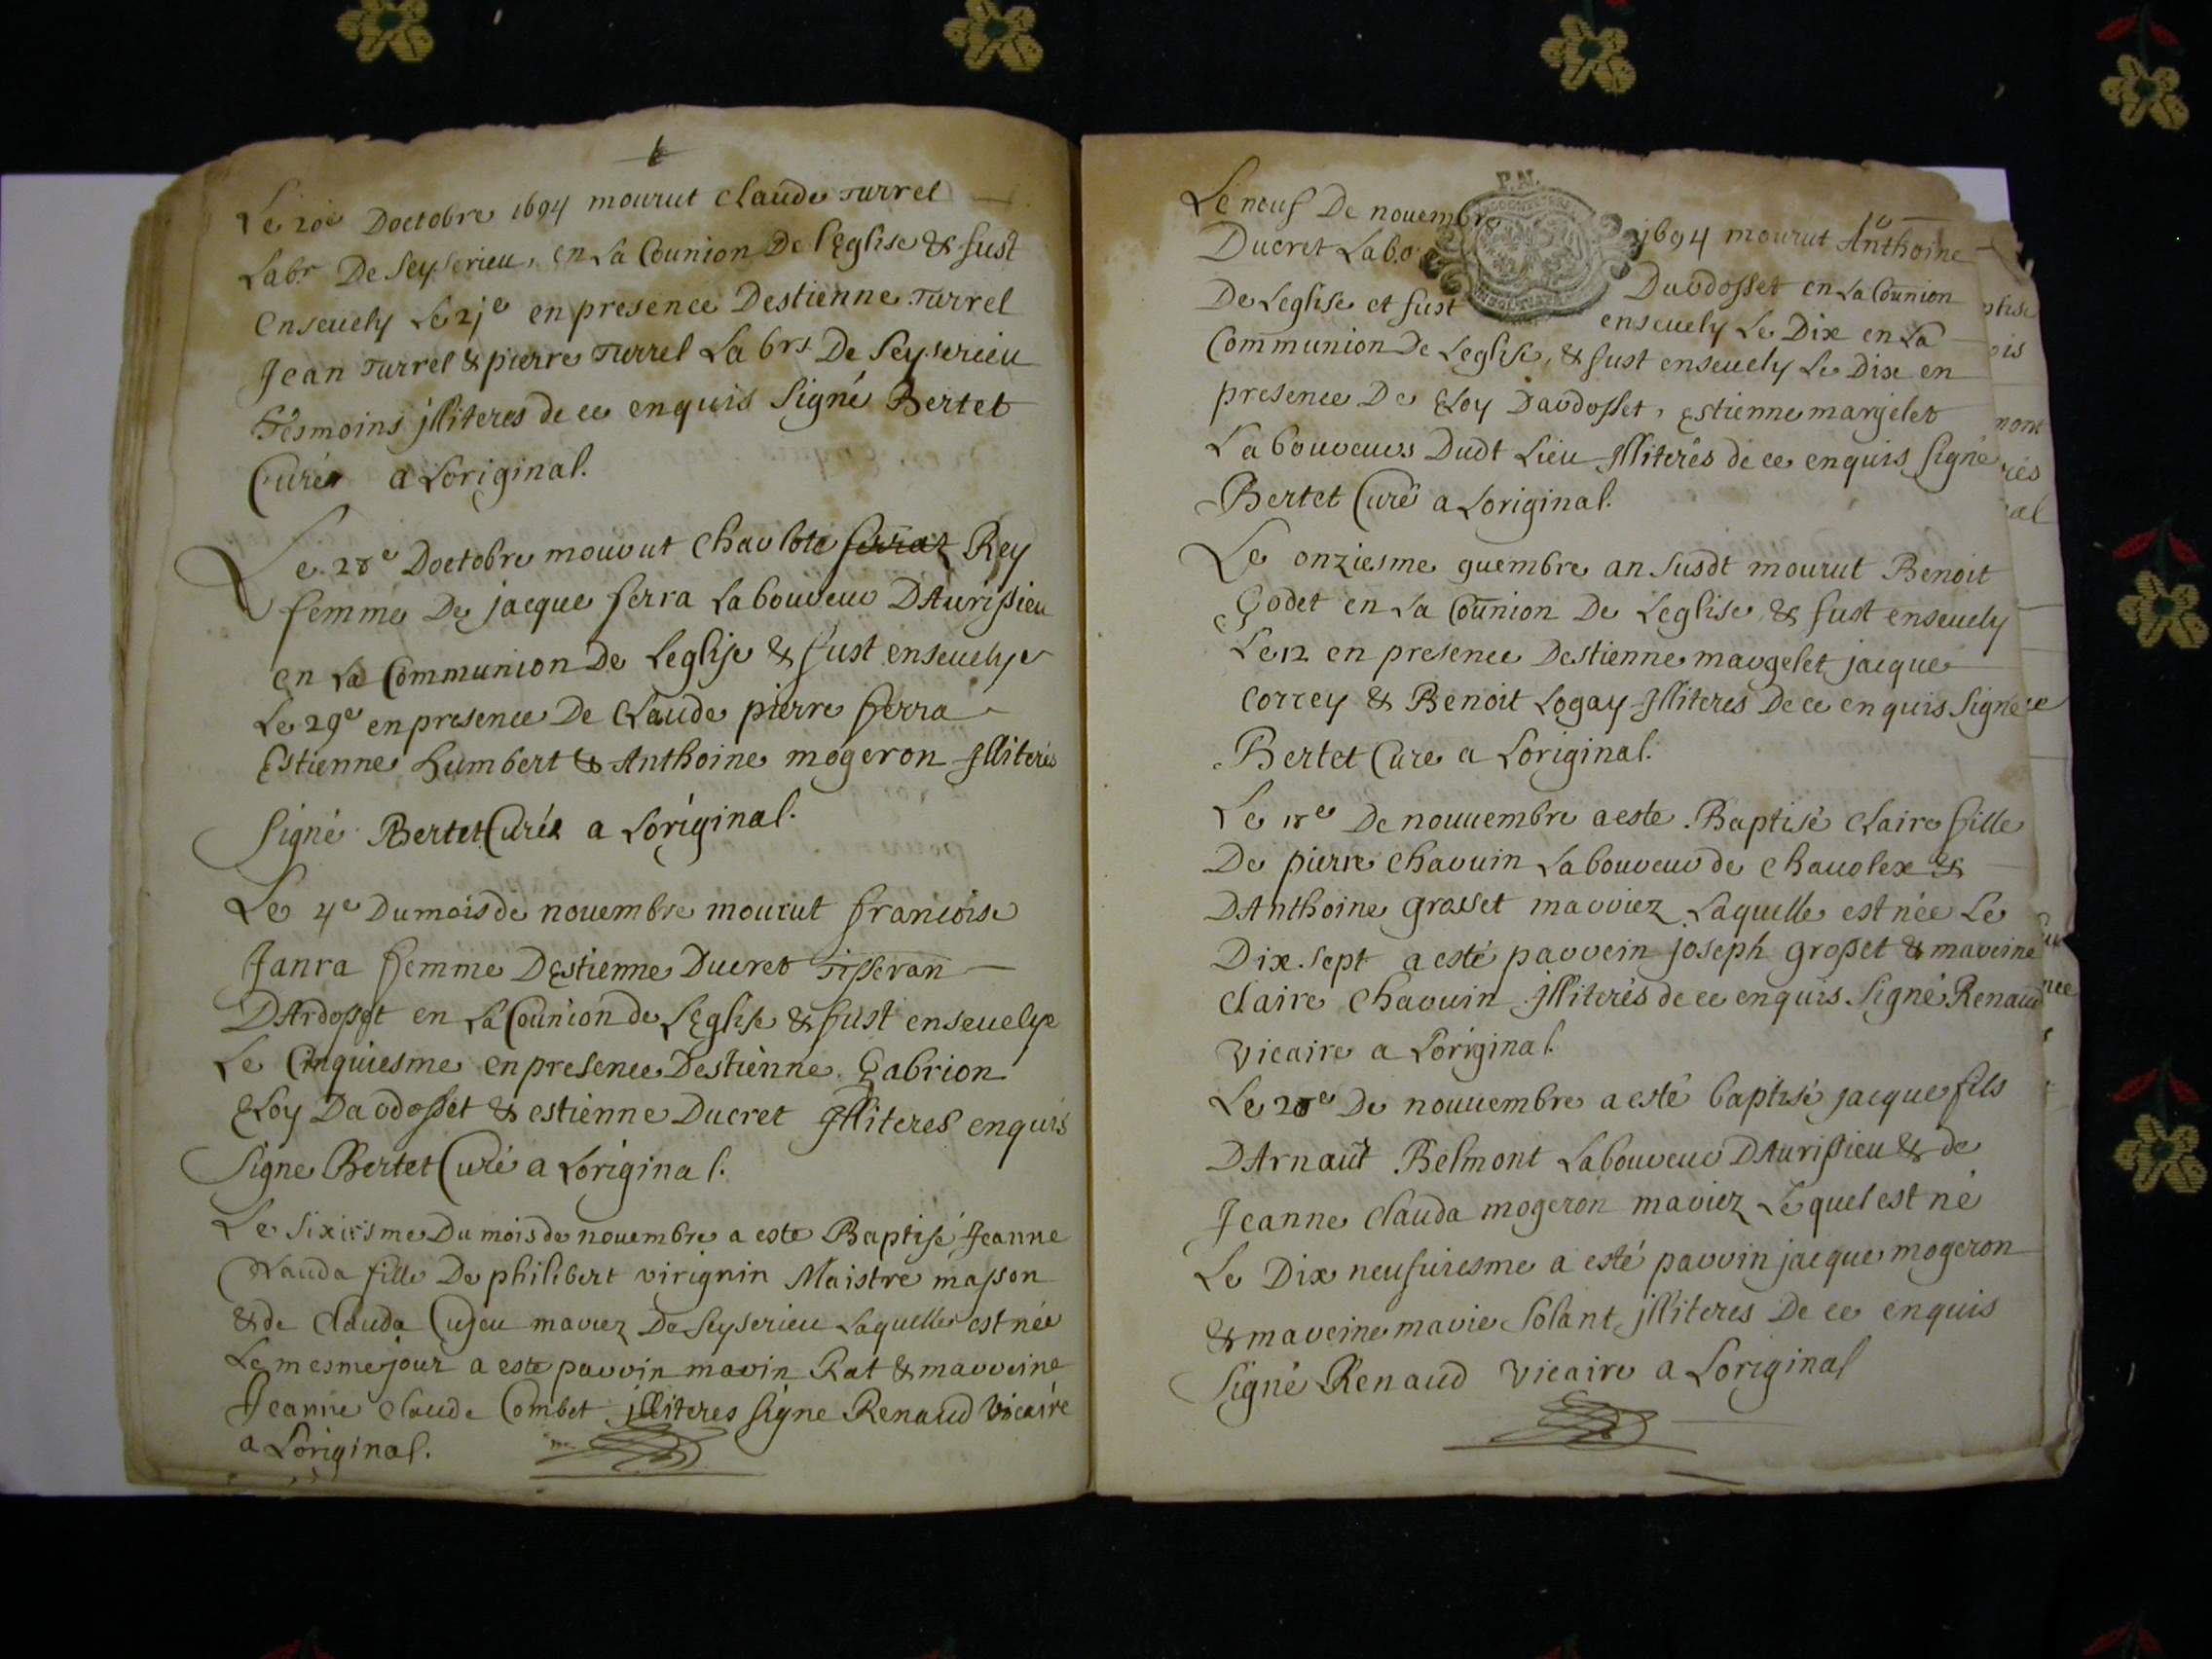 Le 20e Doctobre 1694 mourut Claude Turrel
Labr De Seyserieu, en La Counion De l'Eglise & fust
Enseuely Le 21e en presence Destienne Turrel
Jean Turrel & pierre Turrel Labrs De Seyserieu
Tesmoins jlliteres de ce enquis Signé Bertet
Curéz a Loriginal.
Le 28e Doctobre mourut Charlote ferraz Rey
femme De jacque ferra Laboureur DAurissieu
en La Communion De Leglise & fust enseuelye
Le 29e en presence De Claude pierre ferra
Estienne humbert & Anthoine mogeron Jlliterés
Signé Bertet Curéz a Loriginal.
Le 4e Du mois de nouembre mourut francoise
Janra femme DEstienne Ducret Tisseran
DArdosset en La Counion de LEglise & fust enseuelye
Le Cinquiesme en presence Destienne Gabrion
Eloy Dardosset & estienne Ducret Jlliteres enquis
Signe Bertet Curé a Loriginal.
Le Sixiesme Du mois de nouembre a este Baptisé Jeanne
Clauda fille De philibert virignin Maistre masson
& de Clauda Cujeu mariez De Seyserieu Laquelle est née
Le mesme jour a este parrin marin Rat & marreine
Jeanne Claude Combet jlliteres Signe Renaud Vicaire
a Loriginal.
P.N.
10
Le neuf De nouembre 1694 mourut Anthoine
Ducret Labo Dardosset en La Counion
De Leglise et fust enseuely Le Dix en La
Communion De Leglise, & fust enseuely Le Dix en
presence De Eloy Dardosset, Estienne marjelet
Laboureurs Dudt Lieu Jlliterés de ce enquis Signé
Bertet Curé a Loriginal.
Le onziesme guembre an Susdt mourut Benoit
Godet en La Counion De Leglise & fust enseuely
Le 12 en presence Destienne margelet jacque
Correy & Benoit Logay Jlliteres De ce enquis Signé
Bertet Cure a Loriginal.
Le 18e De nouuembre a este Baptisé Claire fille
De pierre Charuin Laboureur de Charolex &
DAnthoine grosset mariez Laquelle est née Le
Dix Sept a esté parrein joseph grosset & mareine
Claire Charuin jlliterés de ce enquis Signé Renaud
vicaire a Loriginal.
Le 20e De nouuembre a esté baptisé jacque fils
DArnaut Belmont Laboureur DAurissieu & de
Jeanne Clauda mogeron mariez Lequel est né
Le Dix neufuiesme a esté parrin jacque mogeron
& mareine marie Solant jlliteres De ce enquis
Signé Renaud vicaire a Loriginal